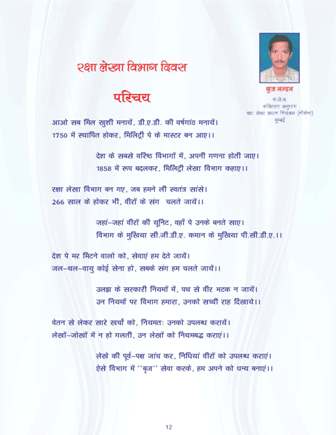 रक्षा लेखा विभाग दिवस
परिचय
बृज नन्दन
मुम्बई
आओ सब मिल खुशी मनायें, डी.ए.डी. की वर्षगांठ मनायें।
1750 में स्थापित होकर, मिलिट्री पे के मास्टर बन आए।।
देश के सबसे वरिष्ठ विभागों में, अपनी गणना होती जाए।
1858 में रूप बदलकर, मिलिट्री लेखा विभाग कहाए।।
रक्षा लेखा विभाग बन गए, जब हमने ली स्वतंत्र सांसे।
266 साल के होकर भी, वीरों के संग चलते जायें।।
जहां-जहां वीरों की यूनिट, वहाँ पे उनके बनते साए।
विभाग के मुखिया सी.जी.डी.ए. कमान के मुखिया पी.सी.डी.ए.।।
देश पे मर मिटने वालो को, सेवाएं हम देते जायें।
जल-थल-वायु कोई सेना हो, सबके संग हम चलते जायें।।
उलझ के सरकारी नियमों में, पथ से वीर भटक न जायें।
उन नियमों पर विभाग हमारा, उनको सच्ची राह दिखाये।।
वेतन से लेकर सारे खर्चों को, नियमतः उनको उपलब्ध करायें।
लेखों-जोखों में न हो गलती, उन लेखों को नियमबद्ध कराएं।।
लेखे की पूर्व-पक्ष जांच कर, निधियां वीरों को उपलब्ध कराएं।
ऐसे विभाग में "बृज" सेवा करके, हम अपने को धन्य बनाएं।।
12